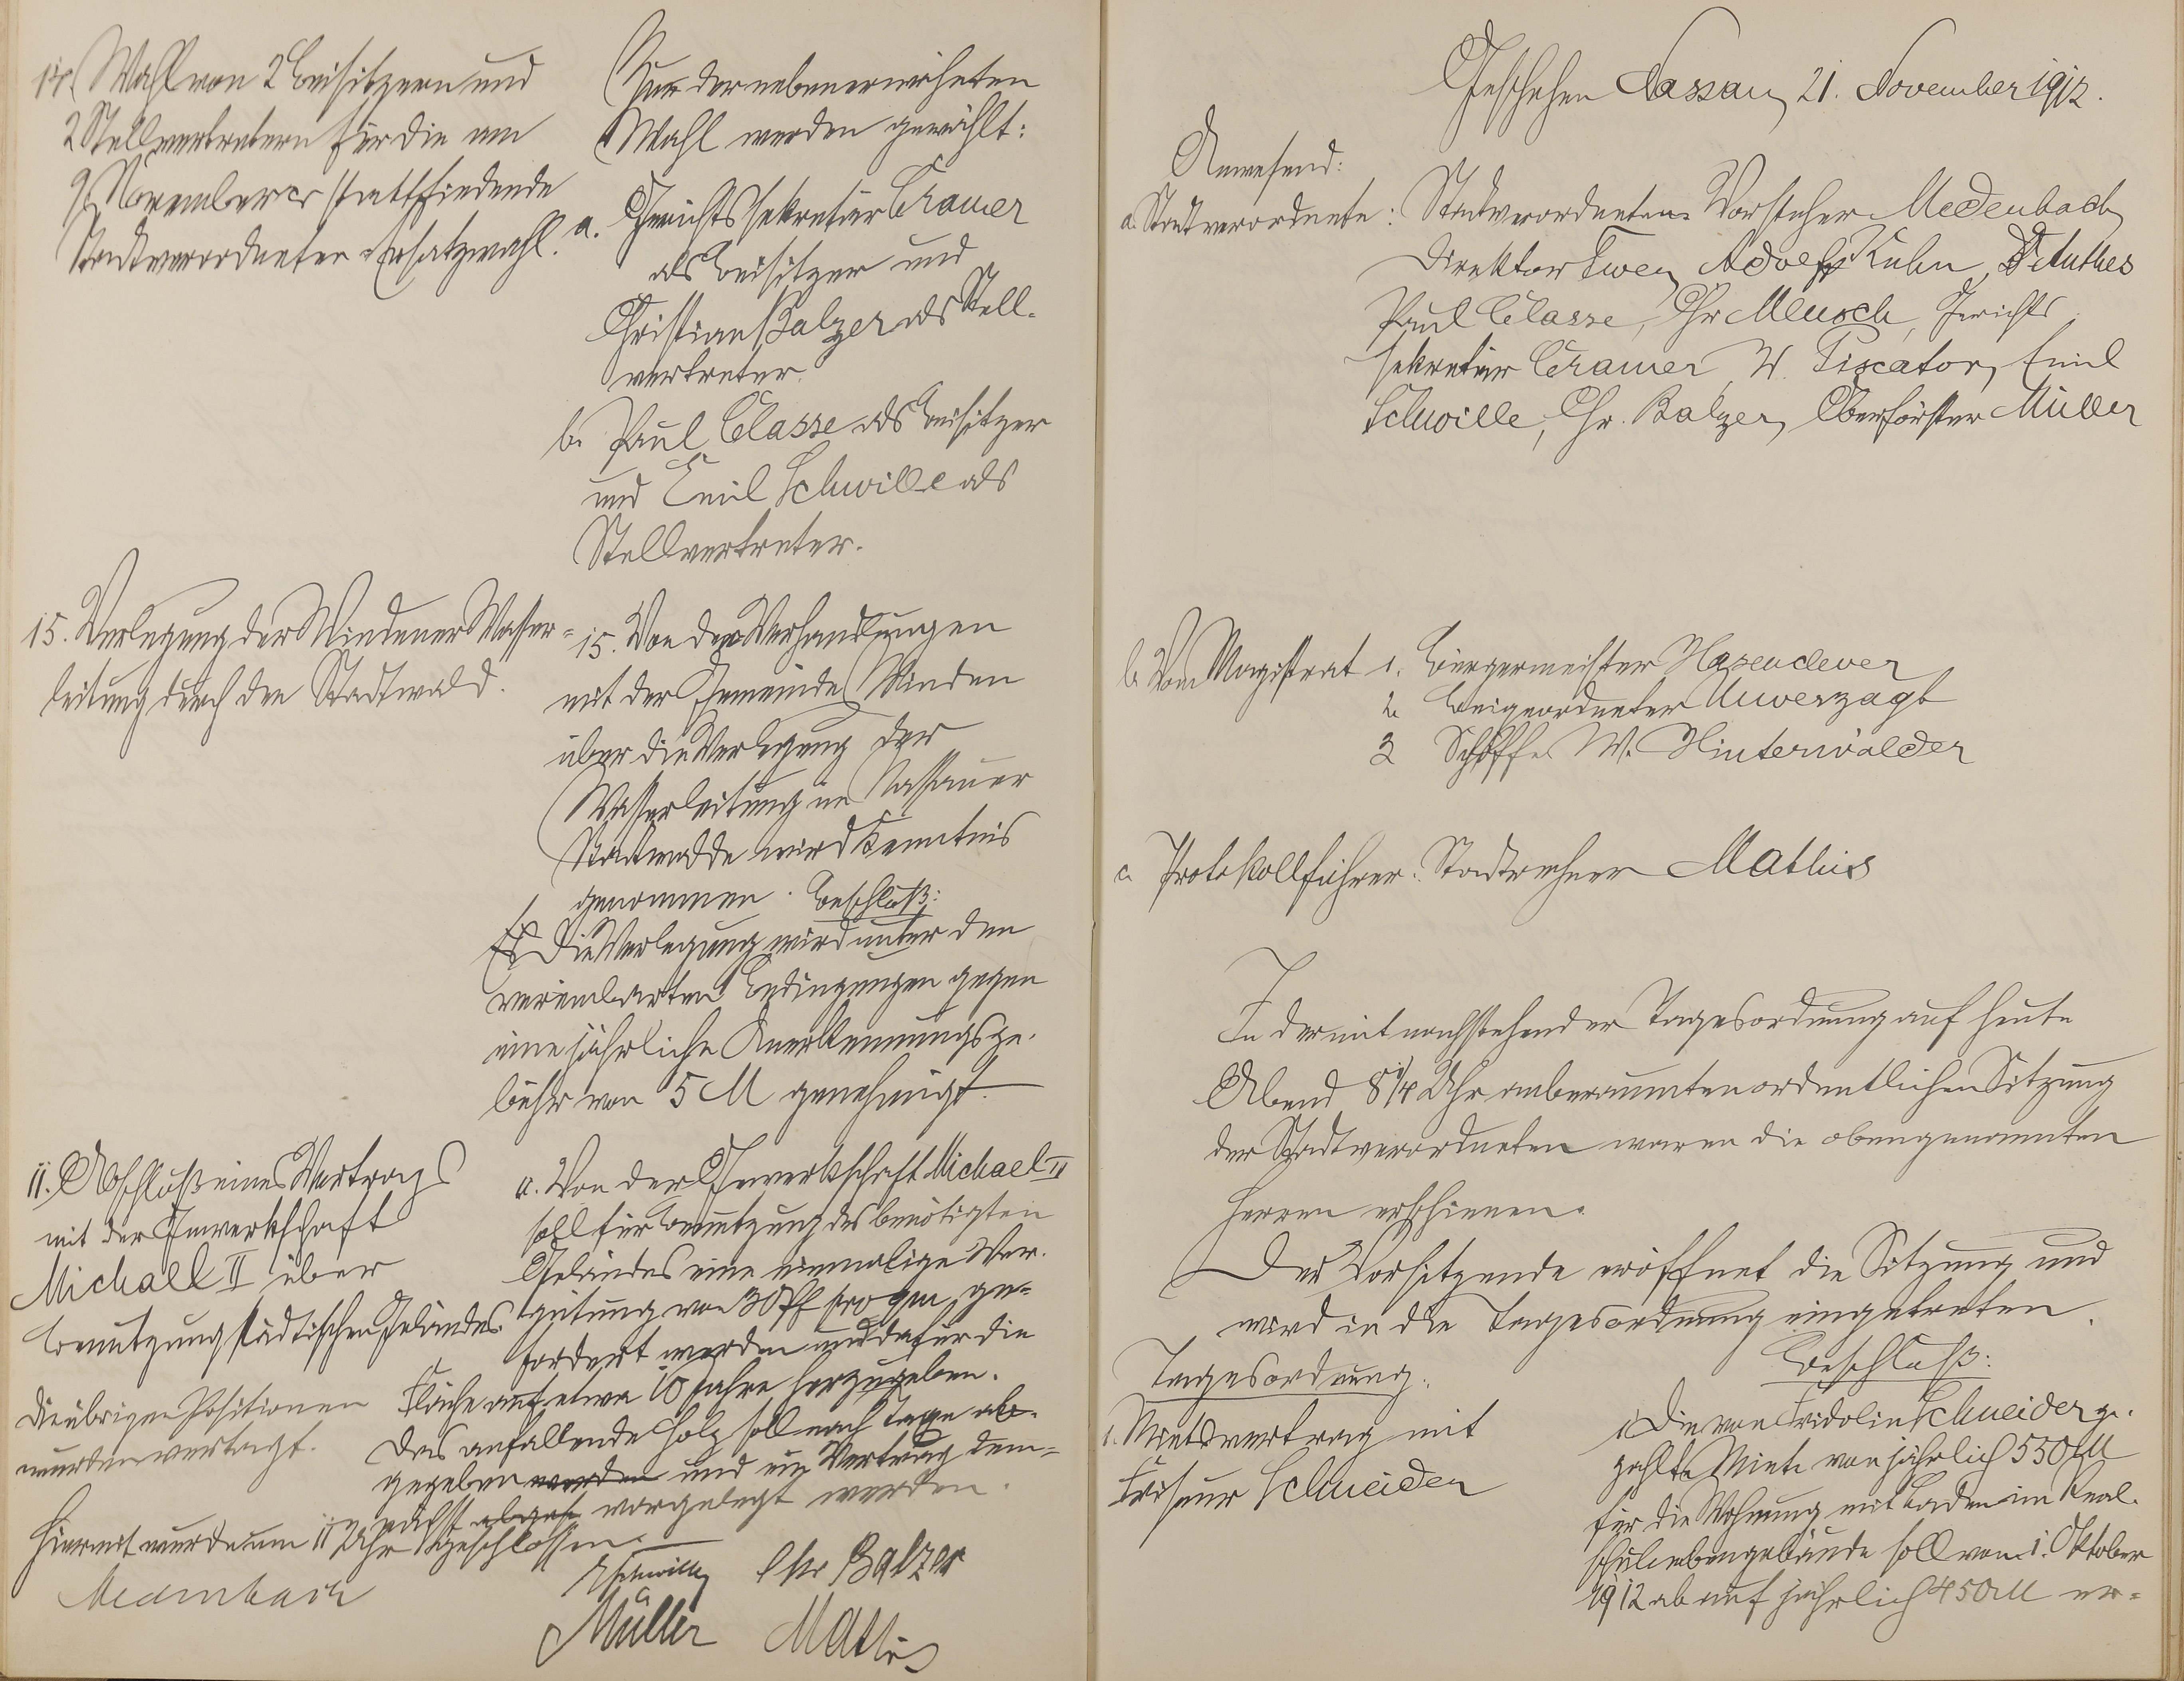 14. Wahl von 2 Beisitzern und
2 Stellvertretern für die am
9. November cr stattfindende
Stadtverordneten-Ersatzwahl.
der nebenerwähnten
Wahl werden gewählt:
a. Gerichtssekretär Cramer
als Beisitzer und
Christian Balzer als Stell-
vertreter.
b. Paul Classe als Beisitzer
und Emil Schwille als
Stellvertreter.
15. Verlegung der Windener Wasser-
leitung durch den Stadtwald.
15. Von den Verhandlungen
mit der Gemeinde Winden
über die Verlegung der
Wasserleitung im Nassauer
Stadtwalde wird Kenntnis
genommen. Beschluß:
Die Verlegung wird unter den
vereinbarten Bedingungen gegen
eine jährliche Anerkennungsge-
bühr von 5 M genehmigt.
11. Abschluß eines Vertrags
mit der Gewerkschaft
Michael II über
Benutzung städtischen Geländes.
11. Von der Gewerkschaft Michael II
soll für Benutzung des benötigten
Geländes eine einmalige Ver-
gütung von 30 Pf pro qm ge-
fordert werden und dafür die
Fläche auf etwa 10 Jahre herzugeben.
Das anfallende Holz soll nach Taxe ab-
gegeben werden und ein Vertrag dem-
nächst vorgelegt werden.
Die übrigen Positionen
wurden vertagt.
Hiermit wurde um 11 Uhr geschlossen.
Medenbach
ESchwille Chr Balzer
Müller Mathis
Geschehen Nassau, 21. November 1912.
Anwesend:
a. Stadtverordnete: Stadtverordneten-Vorsteher Medenbach,
Direktor Twer, Adolf Kuhn, D. Anthes
Paul Classe, Chr Meusch, Gerichts-
sekretär Cramer, W. Piscator, Emil
Schwille, Chr. Balzer, Oberförster Müller
b. Vom Magistrat 1. Bürgermeister Hasenclever
2. Beigeordneter Unverzagt
3 Schöffe W. Hinterwälder
c. Protokollführer: Stadtrechner Mathis
In der mit nachstehender Tagesordnung auf heute
Abend 8 1/4 Uhr anberaumten ordentlichen Sitzung
der Stadtverordneten waren die obengenannten
Herren erschienen.
Der Vorsitzende eröffnet die Sitzung und
wird in die Tagesordnung eingetreten.
Tagesordnung:
Beschluß:
1. Mietsvertrag mit
Friseur Schneider
1. Die von Fridolin Schneider ge-
zahlte Miete von jährlich 550 M
für die Wohnung mit Laden im Real-
schulnebengebäude soll vom 1. Oktober
1912 ab auf jährlich 450 M er-